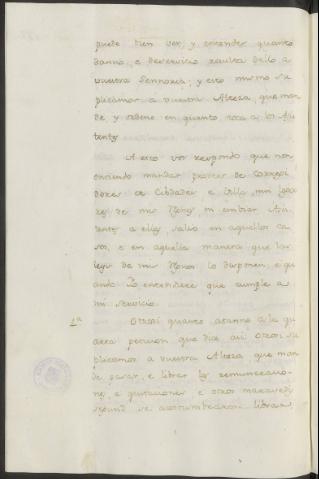 puede bien ver, y entender quanto
danno, e deservicio resulta dello a
vuestra Sennoria; y esto mismo su
plicamos a vuestra Alteza, que man
de, y ordene en quanto toca a los Asis
tentes
A esto vos respondo que non
entiendo mandar proveer de Corregi
dores a Cibdades e Villas, nin
de mis Reynos ni embiar Asis
tentes a ellas salvo en aquellos ca
sos, e en aquella manera que las
leyes de mis Reynos lo disponen, e qu
ando Yo entendiere que cumple a
mi servicio
Otrosi quanto atanne a la
peticion que dice asi Otrosi su
plicamos a vuestra Alteza que man
de pasar, e librar las
nes, e quitaciones e otros maravedis
segund se acostumbraron librar